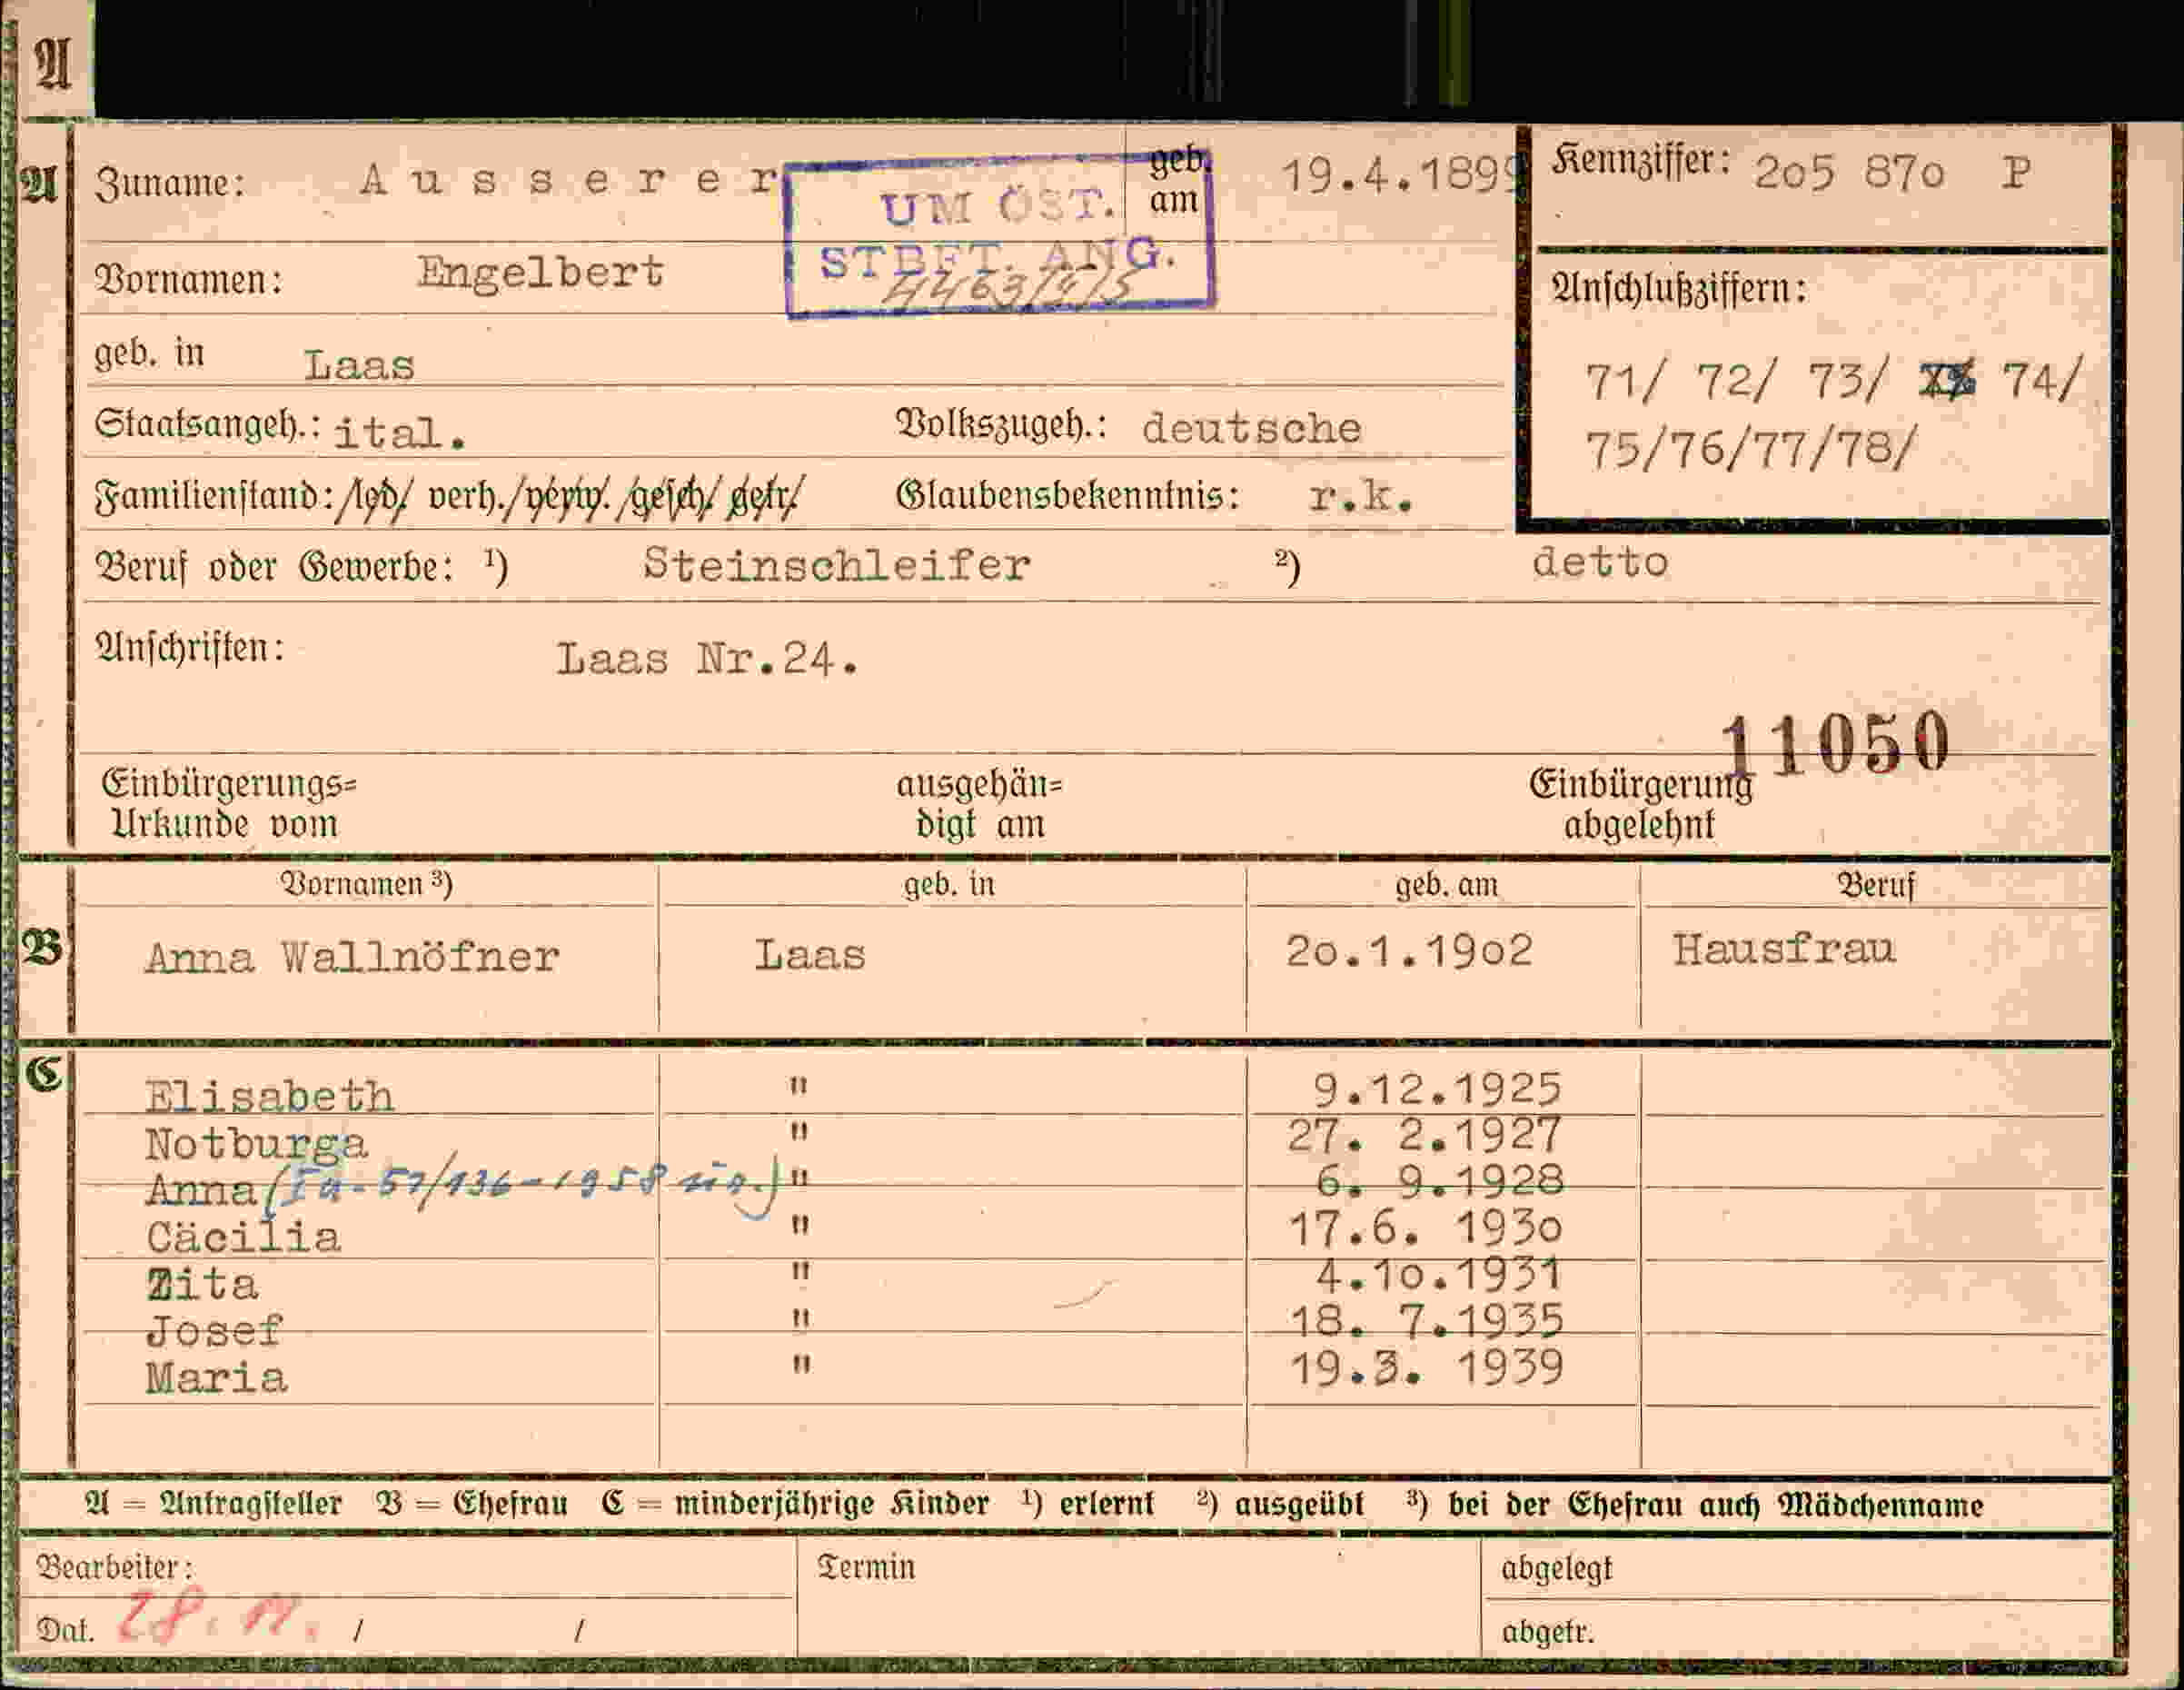 A
A Zuname: Ausserer geb. am 19.4.1899 Kennziffer: 205 870 P
UM ÖST.
STBFT. ANG.
Vornamen: Engelbert
Anschlußziffern:
geb. in Laas
71/ 72/ 73/ 74/
Staatsangeh.: ital. Volkszugeh.: deutsche
75/76/77/78/
Familienstand: /led/ verh./verw./gesch/ getr/ Glaubensbekenntnis: r.k.
Beruf oder Gewerbe: 1) Steinschleifer 2) detto
Anschriften: Laas Nr.24.
11050
Einbürgerungs= ausgehän= Einbürgerung
Urkunde vom digt am abgelehnt
Vornamen 3) geb. in geb. am Beruf
B Anna Wallnöfner Laas 20.1.1902 Hausfrau
C Elisabeth " 9.12.1925
Notburga " 27. 2.1927
Anna " 6. 9.1928
Cäcilia " 17.6. 1930
Zita " 4.10.1931
Josef " 18. 7.1935
Maria " 19.3. 1939
A = Antragsteller B = Ehefrau C = minderjährige Kinder 1) erlernt 2) ausgeübt 3) bei der Ehefrau auch Mädchenname
Bearbeiter: Termin abgelegt
Dat. 28. 11. / / abgetr.